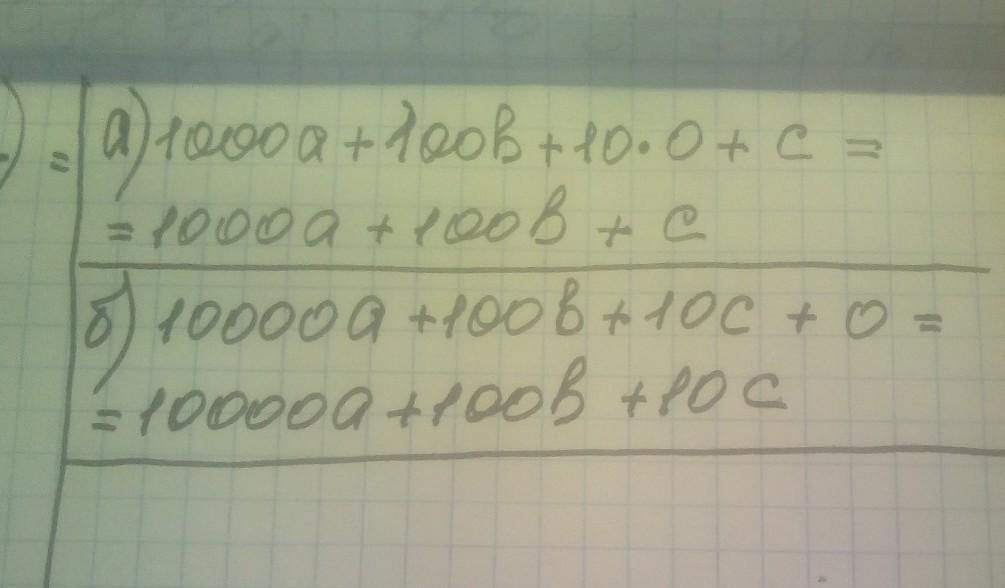 ) = а) 1000a + 100b + 10·0 + c =
= 1000a + 100b + c
б) 10000a + 100b + 10c + 0 =
= 10000a + 100b + 10c